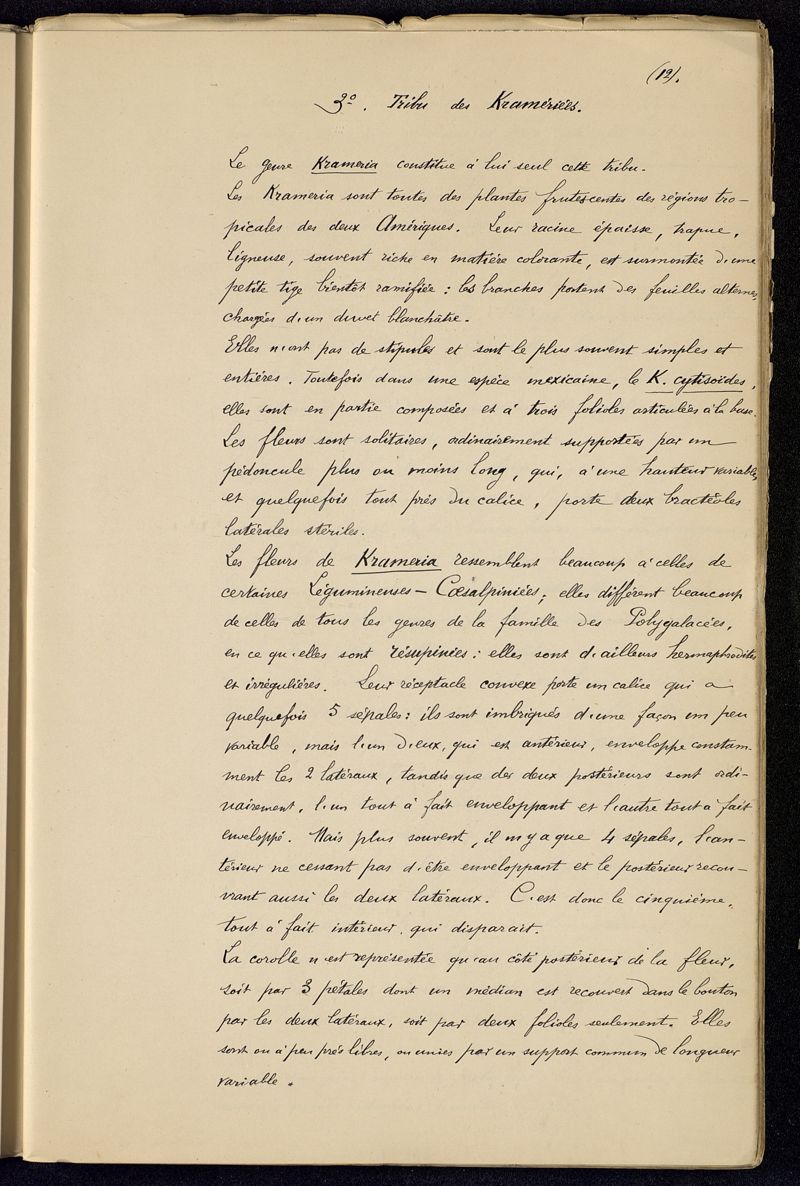 (12).
3º. Tribu des Kramériées.
Le genre Krameria constitue à lui seul cette tribu.
Les Krameria sont toutes des plantes frutescentes des régions tro-
picales des deux Amériques. Leur racine épaisse, trapue,
ligneuse, souvent riche en matière colorante, est surmontée d'une
petite tige bientôt ramifiée : les branches portent des feuilles alternes,
chargées d'un duvet blanchâtre.
Elles n'ont pas de stipules et sont le plus souvent simples et
entières. Toutefois dans une espèce mexicaine, le K. cytisoïdes,
elles sont en partie composées et à trois folioles articulées à la base.
Les fleurs sont solitaires, ordinairement supportées par un
pédoncule plus ou moins long, qui, à une hauteur variable,
et quelquefois tout près du calice, porte deux bractéoles
latérales stériles.
Les fleurs de Krameria ressemblent beaucoup à celles de
certaines Légumineuses - Cæsalpiniées; elles diffèrent beaucoup
de celles de tous les genres de la famille des Polygalacées,
en ce qu'elles sont résupinées : elles sont d'ailleurs hermaphrodites
et irrégulières. Leur réceptacle convexe porte un calice qui a
quelquefois 5 sépales : ils sont imbriqués d'une façon un peu
variable, mais l'un d'eux, qui est antérieur, enveloppe constam-
ment les 2 latéraux, tandis que des deux postérieurs sont ordi-
nairement, l'un tout à fait enveloppant et l'autre tout à fait
enveloppé. Mais plus souvent, il n'y a que 4 sépales, l'an-
térieur ne cessant pas d'être enveloppant et le postérieur recou-
vrant aussi les deux latéraux. C'est donc le cinquième,
tout à fait intérieur, qui disparait.
La corolle n'est représentée qu'au côté postérieur de la fleur,
soit par 3 pétales dont un médian est recouvert dans le bouton
par les deux latéraux, soit par deux folioles seulement. Elles
sont ou à peu près libres, ou unies par un support commun de longueur
variable.